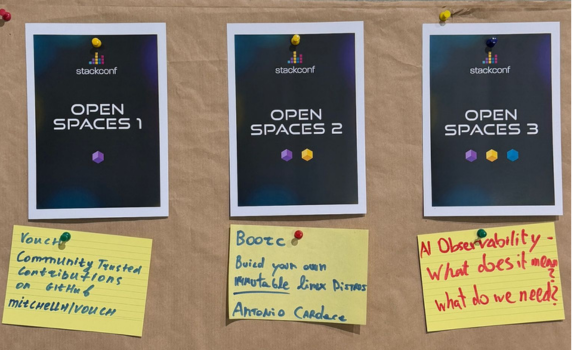 stackconf
OPEN
SPACES 1
stackconf
OPEN
SPACES 2
stackconf
OPEN
SPACES 3
Vouch
Community Trusted
Contributions
on GitHub
mitchellh/vouch
Bootc
Build your own
immutable linux Distros
Antonio
AI Observability -
What does it mean
?
what do we need?